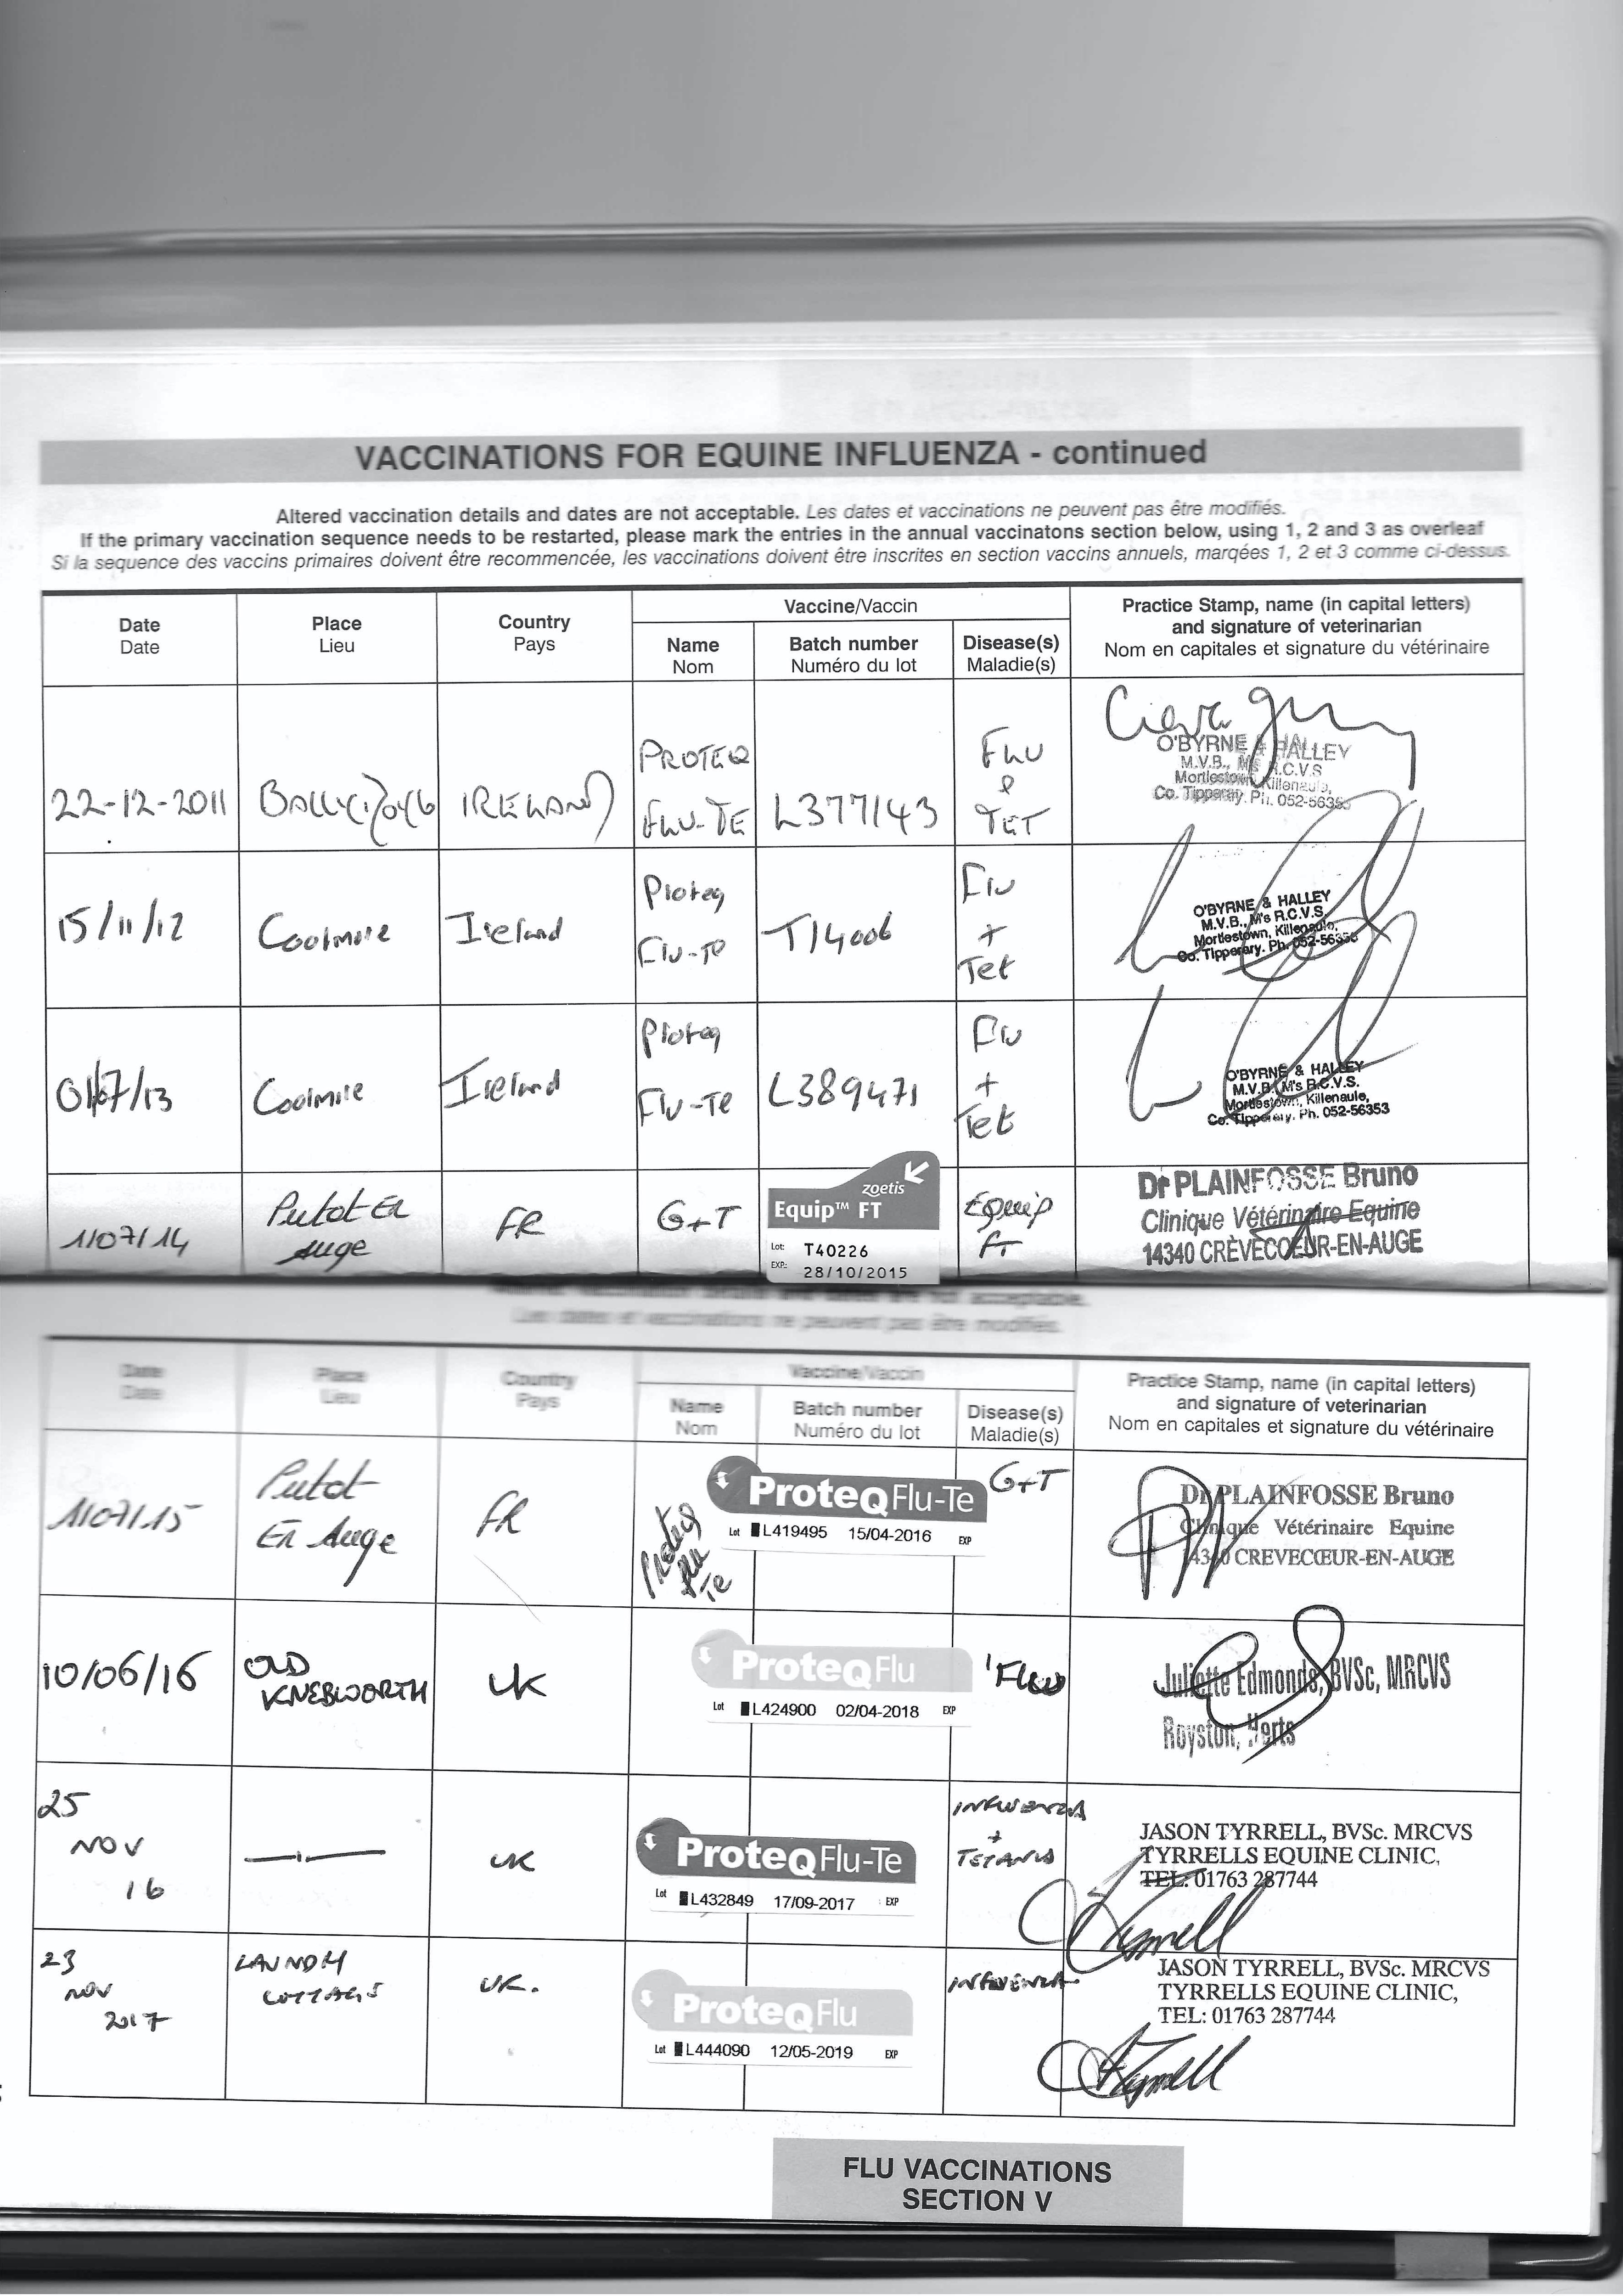 VACCINATIONS FOR EQUINE INFLUENZA - continued
Altered vaccination details and dates are not acceptable. Les dates et vaccinations ne peuvent pas être modifiés.
If the primary vaccination sequence needs to be restarted, please mark the entries in the annual vaccinatons section below, using 1, 2 and 3 as overleaf
Si la sequence des vaccins primaires doivent être recommencée, les vaccinations doivent être inscrites en section vaccins annuels, marqées 1, 2 et 3 comme ci-dessus.
Date
Date
Place
Lieu
Country
Pays
Vaccine/Vaccin
Name
Nom
Batch number
Numéro du lot
Disease(s)
Maladie(s)
Practice Stamp, name (in capital letters)
and signature of veterinarian
Nom en capitales et signature du vétérinaire
22-12-2011
IRELAND
PROTEQ
FLU-TE
L377143
FLU
&
TET
O'BYRNE & HALLEY
M.V.B., M's R.C.V.S
Mortlestown, Killenaule,
Co. Tipperary. Ph. 052-5635
15/11/12
Coolmore
Ireland
Proteq
Flu-Te
T14006
Flu
+
Tet
O'BYRNE & HALLEY
M.V.B., M's R.C.V.S.
Mortlestown, Killenaule,
Co. Tipperary. Ph. 052-56353
01/07/13
Coolmore
Ireland
Proteq
Flu-Te
L389471
Flu
+
Tet
O'BYRNE & HALLEY
M.V.B., M's R.C.V.S.
Mortlestown, Killenaule,
Co. Tipperary. Ph. 052-56353
1107/14
Putot En
Auge
FR
G+T
zoetis
Equip™ FT
Lot: T40226
EXP.: 28/10/2015
Equip
FT
Dr PLAINFOSSE Bruno
Clinique Vétérinaire Equine
14340 CRÈVECOEUR-EN-AUGE
Les dates et vaccinations ne peuvent pas être modifiés.
Date
Date
Place
Lieu
Country
Pays
Vaccine/Vaccin
Name
Nom
Batch number
Numéro du lot
Disease(s)
Maladie(s)
Practice Stamp, name (in capital letters)
and signature of veterinarian
Nom en capitales et signature du vétérinaire
1107/15
Putot
En Auge
FR
Proteq
Flu
Te
ProteQ Flu-Te
Lot L419495 15/04/2016 EXP
G+T
Dr PLAINFOSSE Bruno
Clinique Vétérinaire Equine
14340 CREVECŒUR-EN-AUGE
10/06/16
OLD
KNEBWORTH
UK
ProteQ Flu
Lot L424900 02/04/2018 EXP
'FLU
Juliette Edmonds, BVSc, MRCVS
Royston, Herts
25
NOV
16
UK
ProteQ Flu-Te
Lot L432849 17/09/2017 EXP
INFLUENZA
+
TETANUS
JASON TYRRELL, BVSc. MRCVS
TYRRELLS EQUINE CLINIC,
TEL: 01763 287744
23
NOV
2017
UK.
ProteQ Flu
Lot L444090 12/05/2019 EXP
INFLUENZA
JASON TYRRELL, BVSc. MRCVS
TYRRELLS EQUINE CLINIC,
TEL: 01763 287744
FLU VACCINATIONS
SECTION V